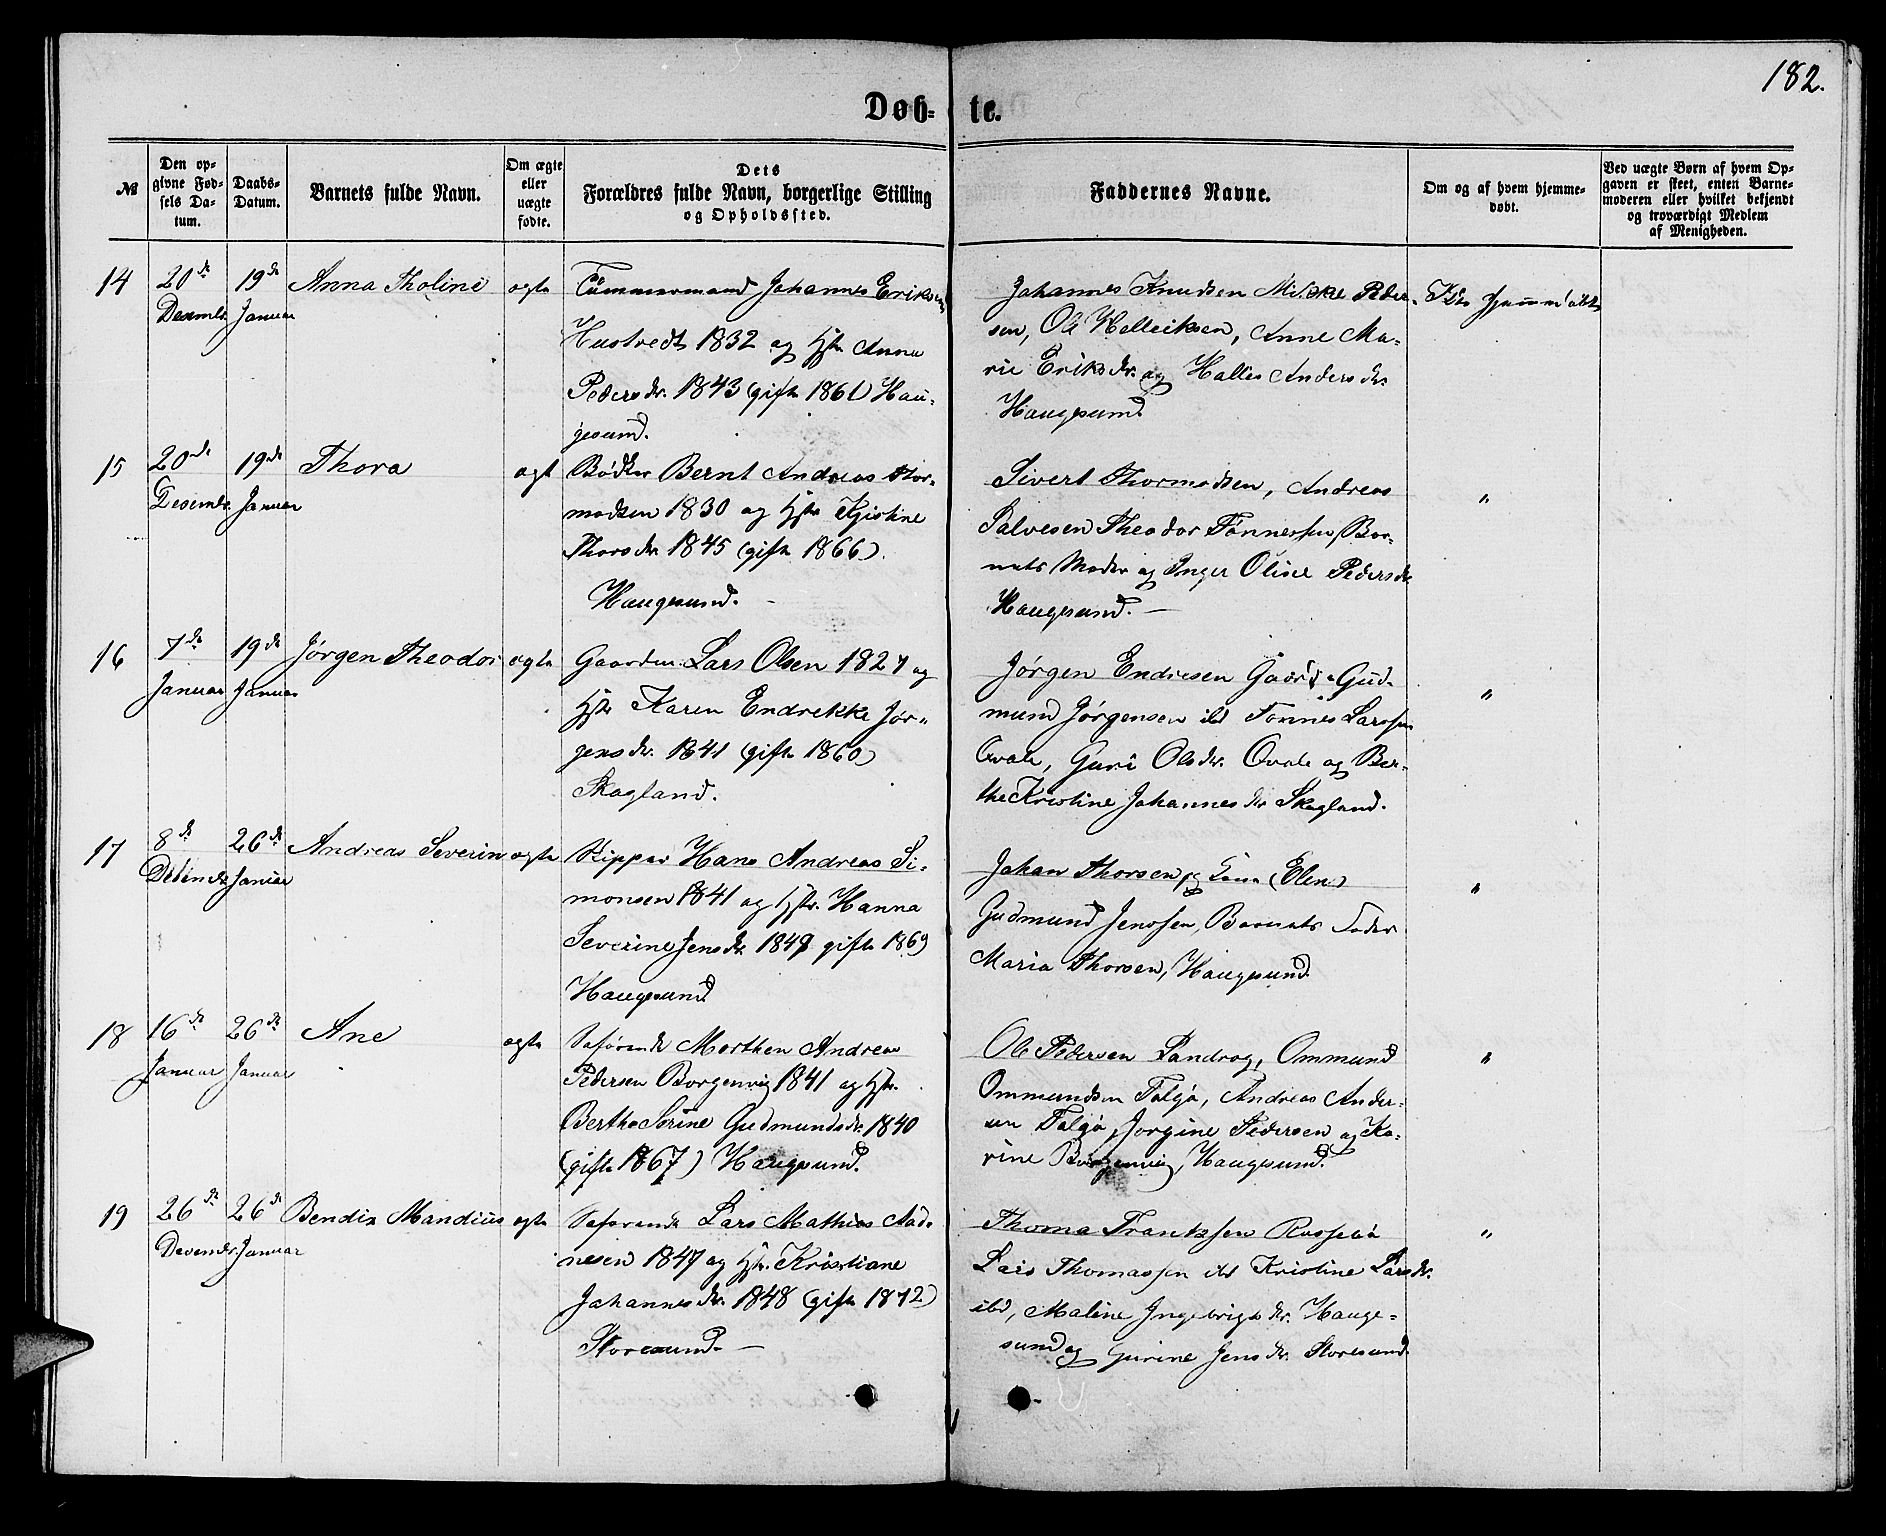 182.
Døb- te.
№
Den op-
givne Fød-
sels Da-
tum.
Daabs-
Datum.
Barnets fulde Navn.
Om ægte
eller
uægte
fødte.
Dets
Forældres fulde Navn, borgerlige Stilling
og Opholdssted.
Faddernes Navne.
Om og af hvem hjemme-
døbt.
Ved uægte Børn af hvem Op-
gaven er skeet, enten Barne-
moderen eller hvilket bekjendt
og troværdigt Medlem
af Menigheden.
14
20de
Desembr.
19de
Januar
Anna Tholine
ægte
Tømmermand Johannes Eriksen
Hustvedt 1832 og Hstr Anna
Pedersdr. 1843 (gifte 1861) Hau-
gesund.
Johannes Knudsen Peder-
sen, Ole Helleiksen, Anne Ma-
rie Eriksdr. og Halles Andersdr.
Haugesund.
15
20de
Desembr.
19de
Januar
Thora
ægt
Bødker Bernt Andreas Thor-
modsen 1830 og Hstr Kjistine
Thorsdr. 1845 (gifte 1866).
Haugesund. -
Sivert Thormodsen, Andreas
Salvesen Theodor Tønnessen, Bar-
nets Moder og Inger Oline Pedersdr.
Haugesund. -
"
16
7de
Januar
19de
Januar
Jørgen Theodor
ægte
Gaardm. Lars Olsen 1827 og
Hstr Karen Endrekke Jør-
gensdr. 1841 (gifte 1860)
Skogland.
Jørgen Endresen Gud-
mund Jørgensen ibd Tønnes Larssen
Qvale, Guri Olsdr. Qvale og Ber-
the Kristine Johannesdr Skogland.
"
17
8de
26de
Januar
Andreas Severin
ægte
Skipper Hans Andreas Si-
monsen 1841 og Hstr. Hanna
Severine Jensdr. 1849 gifte 1869
Haugesund
Johan Thorsen og (Elen)
Gudmund Jenssen, Barnets Fader
Maria Thorsen, Haugesund.
"
18
16de
Januar
26de
Januar
Ane
ægte
Søfarende Morthen Andreas
Pedersen Borgenvig 1841 og Hstr.
Berthe Serine Gudmundsdr. 1840
(gifte 1867) Haugesund.
Ole Pedersen Sandrog, Ommund
Ommundsen Talgø, Andreas Ander-
sen Talgø, Jorgine Pedersen og Ka-
rine Borgenvig, Haugesund.
"
19
26de
26de
Januar
Bendix Mandius
ægte
Søfarende Lars Mathias Aad-
nesen 1847 og Hstr. Kristiane
Johannesdr. 1848 (gifte 1872)
Storesund. -
Thoma Frantzsen Rossebø
Lars Thomassen ibd Kristine Larsdr.
ibd, Maline Ingebrigtsdr. Hauge-
sund og Gurine Jensdr. Storesund.
"